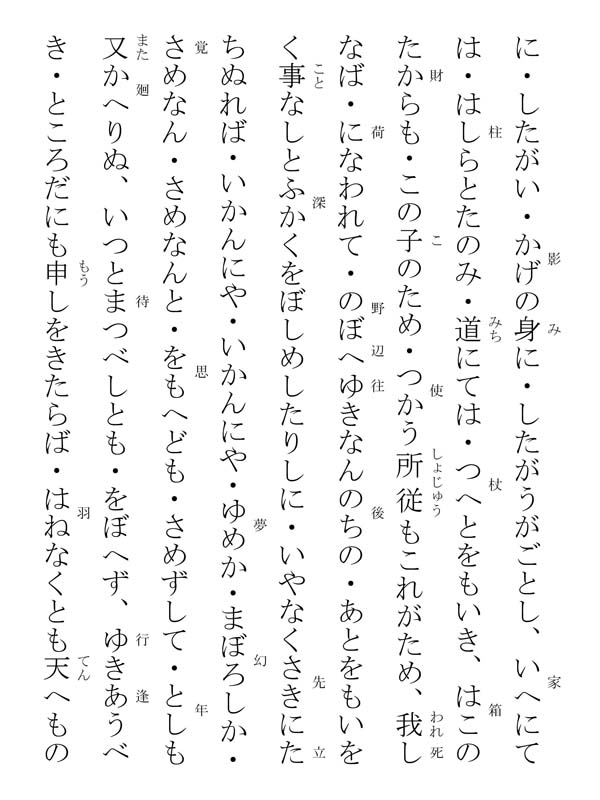 影 み 家
に・したがい・かげの身に・したがうがごとし、いへにて
柱 みち 杖 箱
は・はしらとたのみ・道にては・つへとをもいき、はこの
財 こ 使 しょじゅう われ 死
たからも・この子のため・つかう所従もこれがため、我し
荷 野 辺 往 後
なば・になわれて・のぼへゆきなんのちの・あとをもいを
こと 深 先 立
く事なしとふかくをぼしめしたりしに・いやなくさきにた
夢 幻
ちぬれば・いかんにや・いかんにや・ゆめか・まぼろしか・
覚 思 年
さめなん・さめなんと・をもへども・さめずして・としも
また 廻 待 行 逢
又かへりぬ、いつとまつべしとも・をぼへず、ゆきあうべ
もう 羽 てん
き・ところだにも申しをきたらば・はねなくとも天へもの